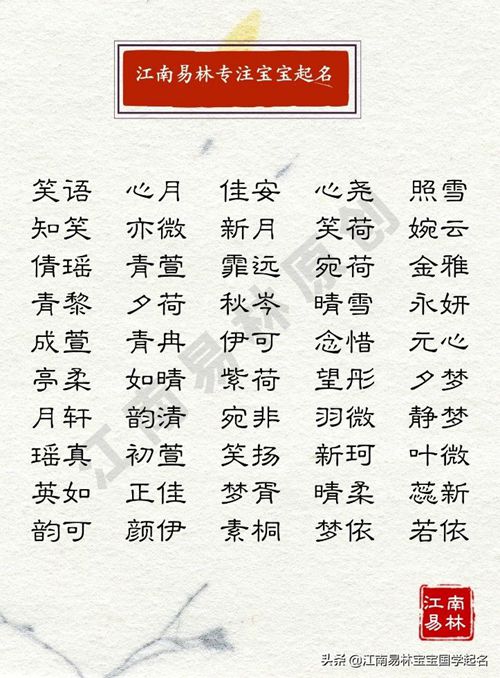 江南易林专注宝宝起名
笑语 心月 佳安 心尧 照雪
知笑 亦微 新月 笑荷 婉云
倩瑶 青萱 霏远 宛荷 金雅
青黎 夕荷 秋岑 晴雪 永妍
成萱 青冉 伊可 念惜 元心
亭柔 如晴 紫荷 望彤 夕梦
月轩 韵清 宛非 羽微 静梦
瑶真 初萱 笑扬 新珂 叶微
英如 正佳 梦胥 晴柔 蕊新
韵可 颜伊 素桐 梦依 若依
江南易林原创
江南
易林
头条 @江南易林宝宝国学起名